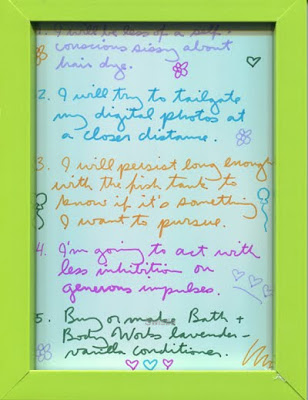 1. I will be less of a self-
conscious sissy about
hair dye.
2. I will try to tailgate
my digital photos at
a closer distance.
3. I will persist long enough
with the fish tank to
know if it's something
I want to pursue.
4. I'm going to act with
less inhibition on
generous impulses.
5. Buy or make Bath +
Body Works lavender-
vanilla conditioner.